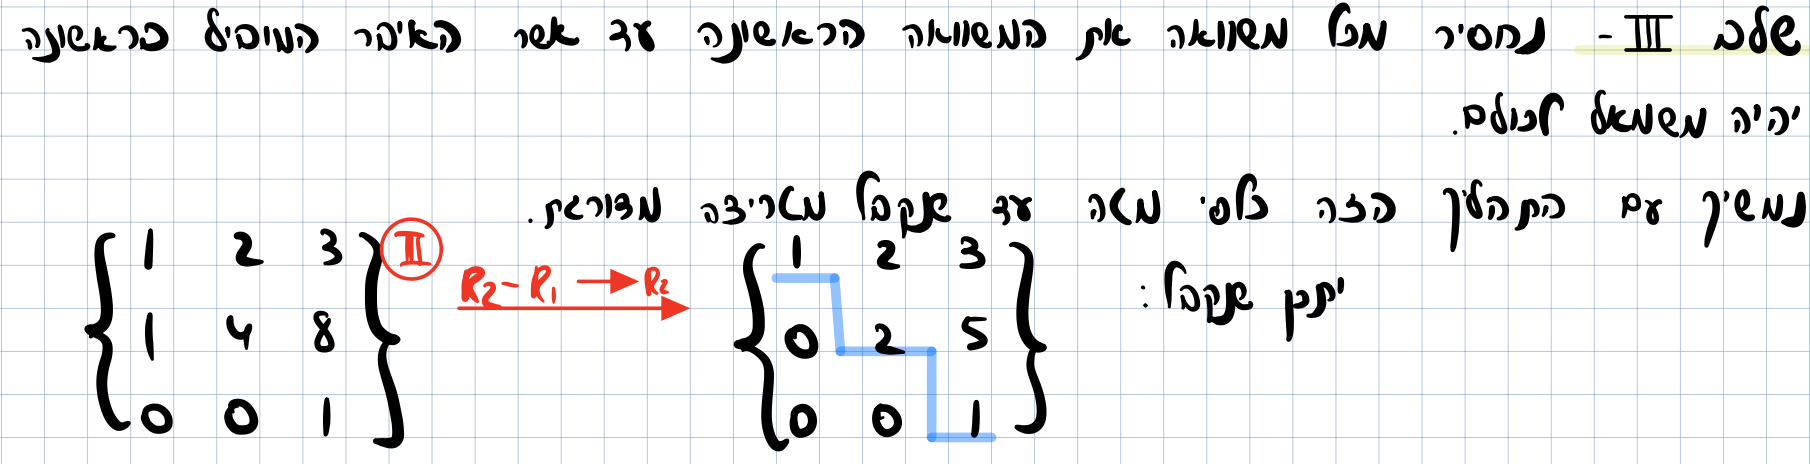 שלב III - נחסיר מכל משוואה את המשוואה הראשונה עד אשר האיבר המוביל בראשונה
יהיה משמאל לכולם.
נמשיך עם התהליך הזה כלפי מטה עד שנקבל מטריצה מדורגת.
יתכן שנקבל:
1 2 3 III 1 2 3
R₂ - R₁ → R₂
1 4 8 0 2 5
0 0 1 0 0 1